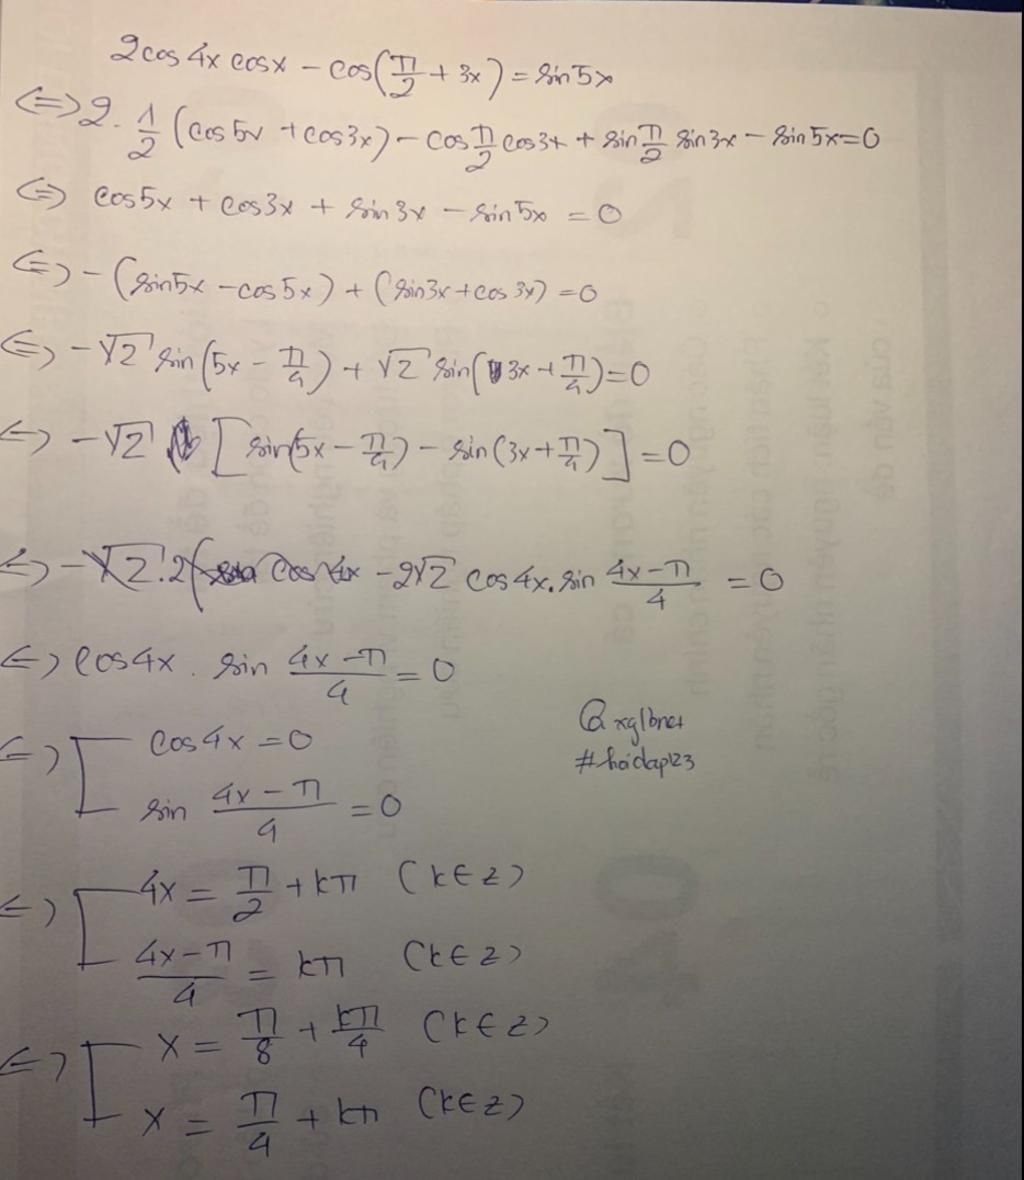 2cos4x cosx - cos(π/2 + 3x) = sin5x
<=> 2. 1/2 (cos5x + cos3x) - cos π/2 cos3x + sin π/2 sin3x - sin5x = 0
<=> cos5x + cos3x + sin3x - sin5x = 0
<=> -(sin5x - cos5x) + (sin3x + cos3x) = 0
<=> -√2 sin(5x - π/4) + √2 sin(3x + π/4) = 0
<=> -√2 [sin(5x - π/4) - sin(3x + π/4)] = 0
<=> -2√2 cos4x. sin (4x-π)/4 = 0
<=> cos4x . sin (4x-π)/4 = 0
@xglbnet
#hoidap123
<=> [ cos4x = 0
sin (4x-π)/4 = 0
<=> [ 4x = π/2 + kπ (k∈Z)
(4x-π)/4 = kπ (k∈Z)
<=> [ x = π/8 + kπ/4 (k∈Z)
x = π/4 + kπ (k∈Z)